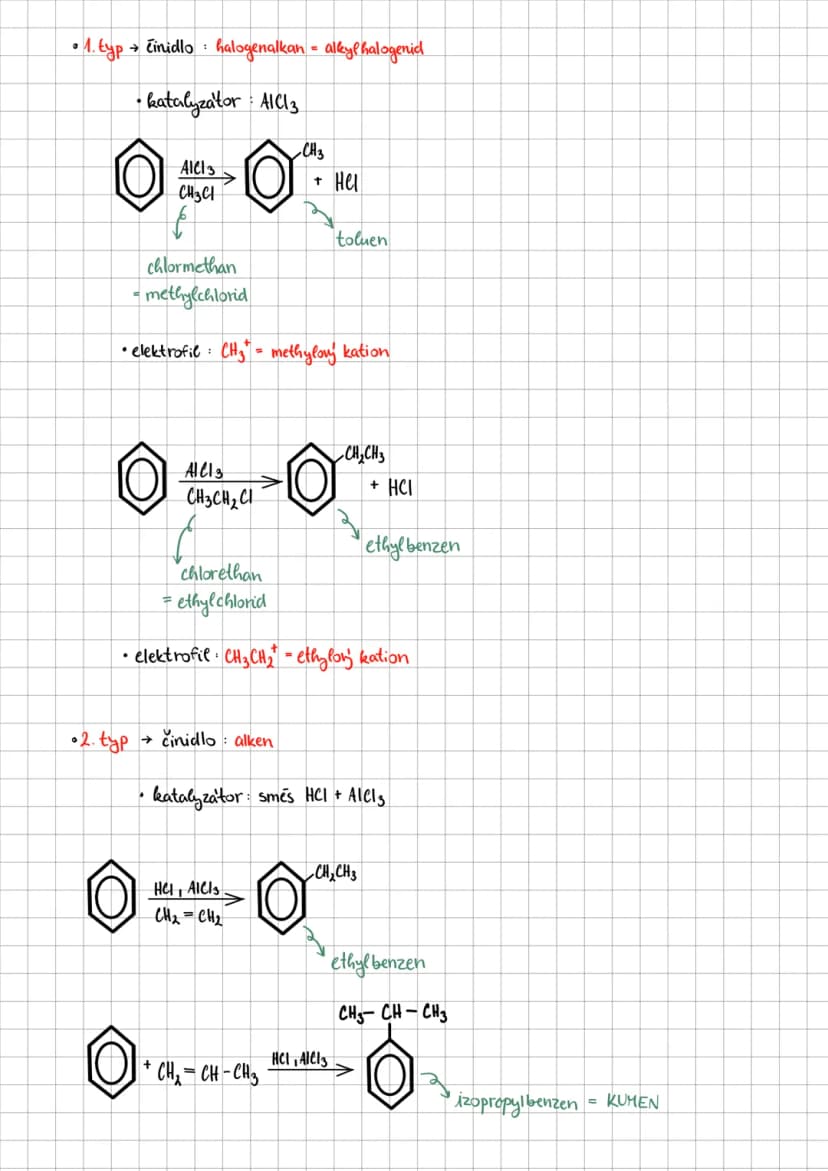 • 1. typ → činidlo : halogenalkan = alkylhalogenid
• katalyzátor : AlCl3
CH3
AlCl3
CH3Cl
+ HCl
toluen
chlormethan
= methylchlorid
• elektrofil : CH3+ = methylový kation
CH2CH3
AlCl3
CH3CH2Cl
+ HCl
ethylbenzen
chlorethan
= ethylchlorid
• elektrofil : CH3CH2+ = ethylový kation
• 2. typ → činidlo : alken
• katalyzátor : směs HCl + AlCl3
CH2CH3
HCl , AlCl3
CH2 = CH2
ethylbenzen
CH3 – CH – CH3
+ CH2 = CH – CH3
HCl , AlCl3
izopropylbenzen = KUMEN